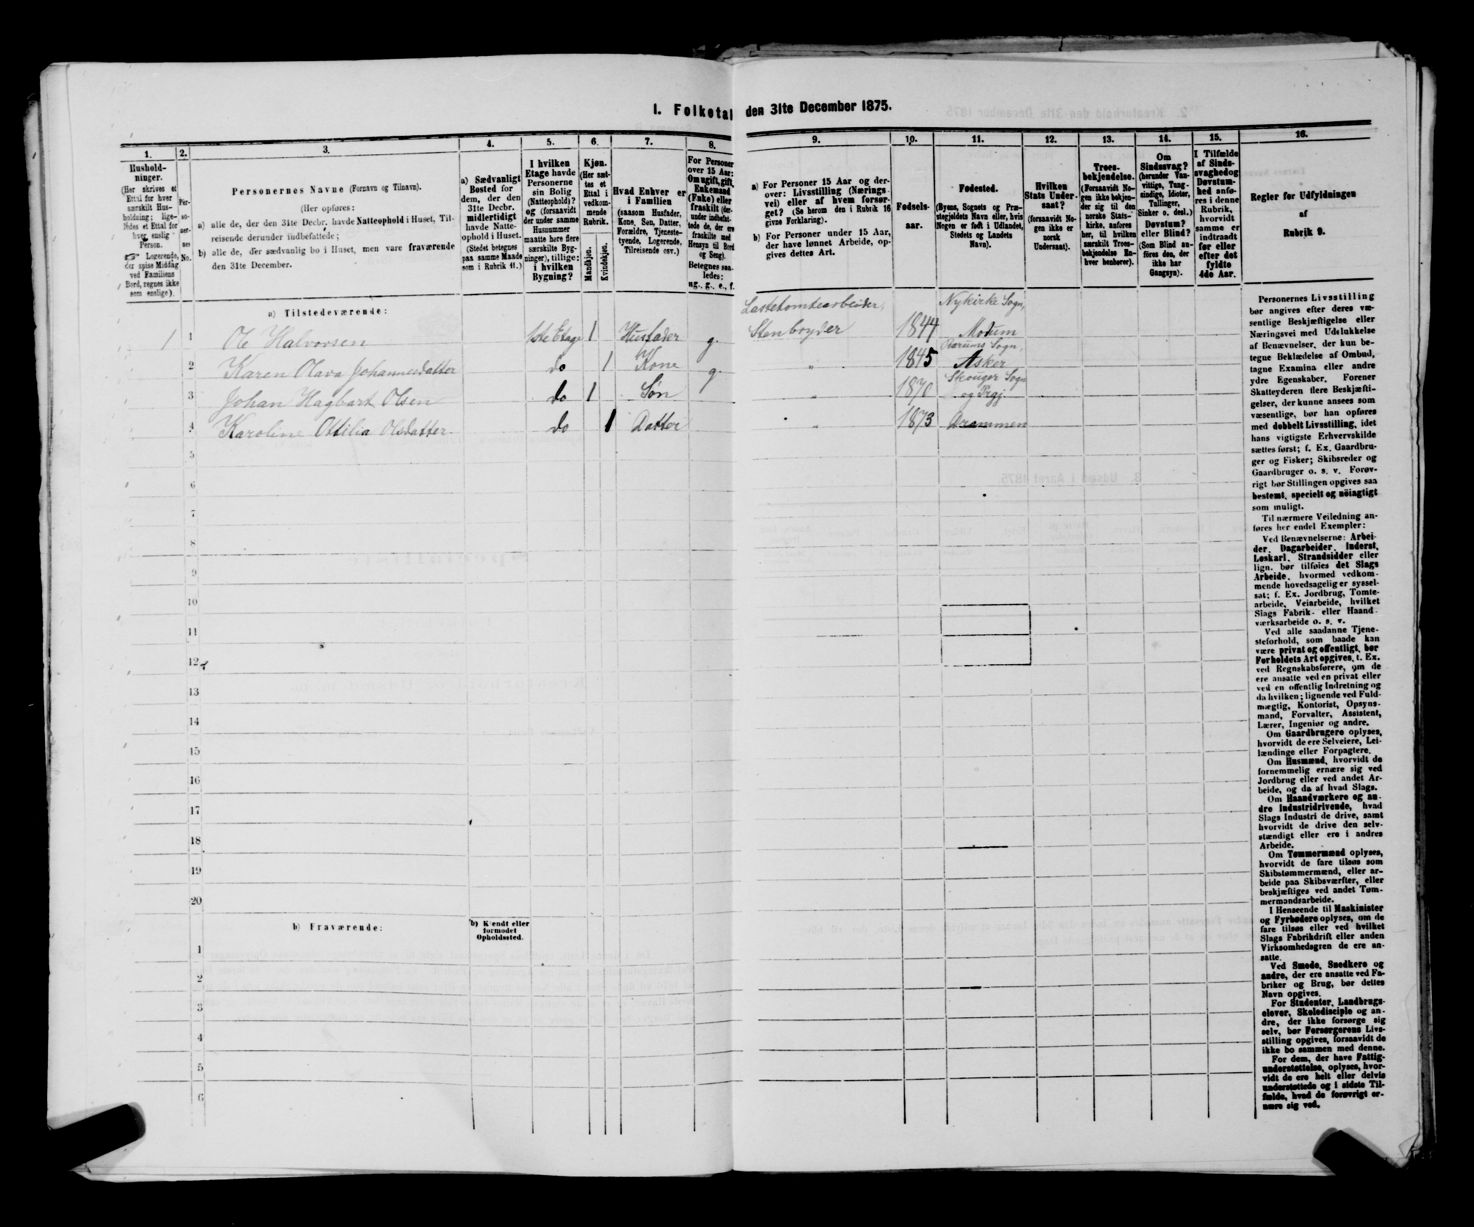 1. Folketal den 31te December 1875.
1.
2.
3.
4.
5.
6.
7.
8.
9.
10.
11.
12.
13.
14.
15.
16.
Hushold-
ninger.
(Her skrives et
Ettal for hver
særskilt Hus-
holdning; lige-
ledes et Ettal for
hver enslig
Person.
☞ Logerende,
der spise Middag
ved Familiens
Bord, regnes ikke
som enslige).
Per-
so-
ner-
nes
No.
Personernes Navne (Fornavn og Tilnavn).
(Her opføres:
a) alle de, der den 31te Decbr. havde Natteophold i Huset, Til-
reisende derunder indbefattede;
b) alle de, der sædvanlig bo i Huset, men vare fraværende
den 31te December.
a) Sædvanligt
Bosted for
dem, der den
31te Decbr.
midlertidigt
havde Natte-
ophold i Huset.
(Stedet betegnes
paa samme Maade
som i Rubrik 11.)
I hvilken
Etage havde
Personerne
sin Bolig
(Natteophold)?
og (forsaavidt
der under samme
Husnummer
maatte høre flere
særskilte Byg-
ninger), tillige:
i hvilken
Bygning?
Kjøn.
(Her sæt-
tes et
Ettal i
vedkom-
mende
Rubrik.
Mandkjøn.
Kvindekjøn.
Hvad Enhver er
i Familien
(saasom Husfader,
Kone, Søn, Datter,
Forældre, Tjeneste-
tyende, Logerende,
Tilreisende osv.)
For Personer
over 15 Aar:
Om ugift, gift,
Enkemand
(Enke) eller
fraskilt (der-
under indbefat-
tede de, der ere
fraskilte med
Hensyn til Bord
og Seng).
Betegnes saa-
ledes:
ug., g., e., f.
a) For Personer 15 Aar og der-
over: Livsstilling (Nærings-
vei) eller af hvem forsør-
get? (Se herom den i Rubrik 16
givne Forklaring).
b) For Personer under 15 Aar,
der have lønnet Arbeide, op-
gives dettes Art.
Fødsels-
aar.
Fødested.
(Byens, Sognets og Præ-
stegjeldets Navn eller, hvis
Nogen er født i Udlandet,
Stedets og Landets
Navn).
Hvilken
Stats Under-
saat?
(forsaavidt No-
gen ikke er
norsk
Undersaat).
Troes-
bekjendelse.
(Forsaavidt No-
gen ikke bekjen-
der sig til den
norske Stats-
kirke, anføres
her, til hvilken
særskilt Troes-
bekjendelse En-
hver henhører).
Om
Sindssvag?
(herunder Van-
vittige, Tung-
sindige, Idioter,
Tullinger,
Sinker o. desl.)
Døvstum?
eller Blind?
(Som Blind an-
føres den, der
ikke har
Gangsyn).
I Tilfælde
af Sinds-
svaghed og
Døvstum-
hed anfø-
res i denne
Rubrik,
hvorvidt
samme er
indtraadt
før eller
efter det
fyldte
4de Aar.
Regler for Udfyldningen
af
Rubrik 9.
a) Tilstedeværende:
1 1 Ole Halvorsen 1ste Etage 1 Husfader g. Lastetomtearbeider, Stenbryder 1844 Nykirke Sogn, Modum
2 Karen Olava Johannesdatter do 1 Kone g. „ 1845 Asker
3 Johan Hagbart Olsen do 1 Søn 1870 Skouger Sogn og Prgj.
4 Karoline Ottilia Olsdatter do 1 Datter „ 1873 Drammen
5
6
7
8
9
10
11
12
13
14
15
16
17
18
19
20
b) Fraværende:
b) Kjendt eller
formodet
Opholdssted.
1
2
3
4
5
6
Personernes Livsstilling
bør angives efter deres væ-
sentlige Beskjæftigelse eller
Næringsvei med Udelukkelse
af Benævnelser, der kun be-
tegne Beklædelse af Ombud,
tagne Examina eller andre
ydre Egenskaber. Forener
Skatteyderen flere Beskjæfti-
gelser, der kunne ansees som
væsentlige, bør han opføres
med dobbelt Livsstilling, idet
hans vigtigste Erhvervskilde
sættes først; f. Ex. Gaardbru-
ger og Fisker; Skibsreder og
Gaardbruger o. s. v. Forøv-
rigt bør Stillingen opgives saa
bestemt, specielt og nöiagtigt
som muligt.
Til nærmere Veiledning an-
føres her endel Exempler:
Ved Benævnelserne: Arbei-
der, Dagarbeider, Inderst,
Løskarl, Strandsidder eller
lign. bør tilføies det Slags
Arbeide, hvormed vedkom-
mende hovedsagelig er syssel-
sat; f. Ex. Jordbrug, Tomte-
arbeide, Veiarbeide, hvilket
Slags Fabrik- eller Haand-
værksarbeide o. s. v.
Ved alle saadanne Tjene-
steforhold, som baade kan
være privat og offentligt, bør
Forholdets Art opgives, t. Ex.
ved Regnskabsførere, om de
ere ansatte ved en privat eller
ved en offentlig Indretning og
da hvilken; lignende ved Fuld-
mægtig, Kontorist, Opsyns-
mand, Forvalter, Assistent,
Lærer, Ingeniør og andre.
Om Gaardbrugere oplyses,
hvorvidt de ere Selveiere, Lei-
lændinge eller Forpagtere.
Om Husmænd, hvorvidt de
fornemmelig ernære sig ved
Jordbrug eller ved andet Ar-
beide, og da af hvad Slags.
Om Haandværkere og an-
dre Industridrivende, hvad
Slags Industri de drive, samt
hvorvidt de drive den selv-
stændigt eller ere i andres
Arbeide.
Om Tømmermænd oplyses,
hvorvidt de fare tilsøs som
Skibstømmermænd, eller ar-
beide paa Skibsværfter, eller
beskjæftiges ved andet Tøm-
mermandsarbeide.
I Henseende til Maskinister
og Fyrbødere oplyses, om de
fare tilsøs eller ved hvilket
Slags Fabrikdrift eller anden
Virksomhedsgren de ere an-
satte.
Ved Smede, Snedkere og
andre, der ere ansatte ved Fa-
briker og Brug, bør dettes
Navn opgives.
For Studenter, Landbrugs-
elever, Skoledisciple og an-
dre, der ikke forsørge sig
selv, bør Forsørgerens Livs-
stilling opgives, forsaavidt de
ikke bo sammen med denne.
For dem, der have Fattig-
understøttelse, oplyses, hvor-
vidt de ere helt eller delvis
understøttede og i sidste Til-
fælde, hvad de forøvrigt er-
nære sig ved.